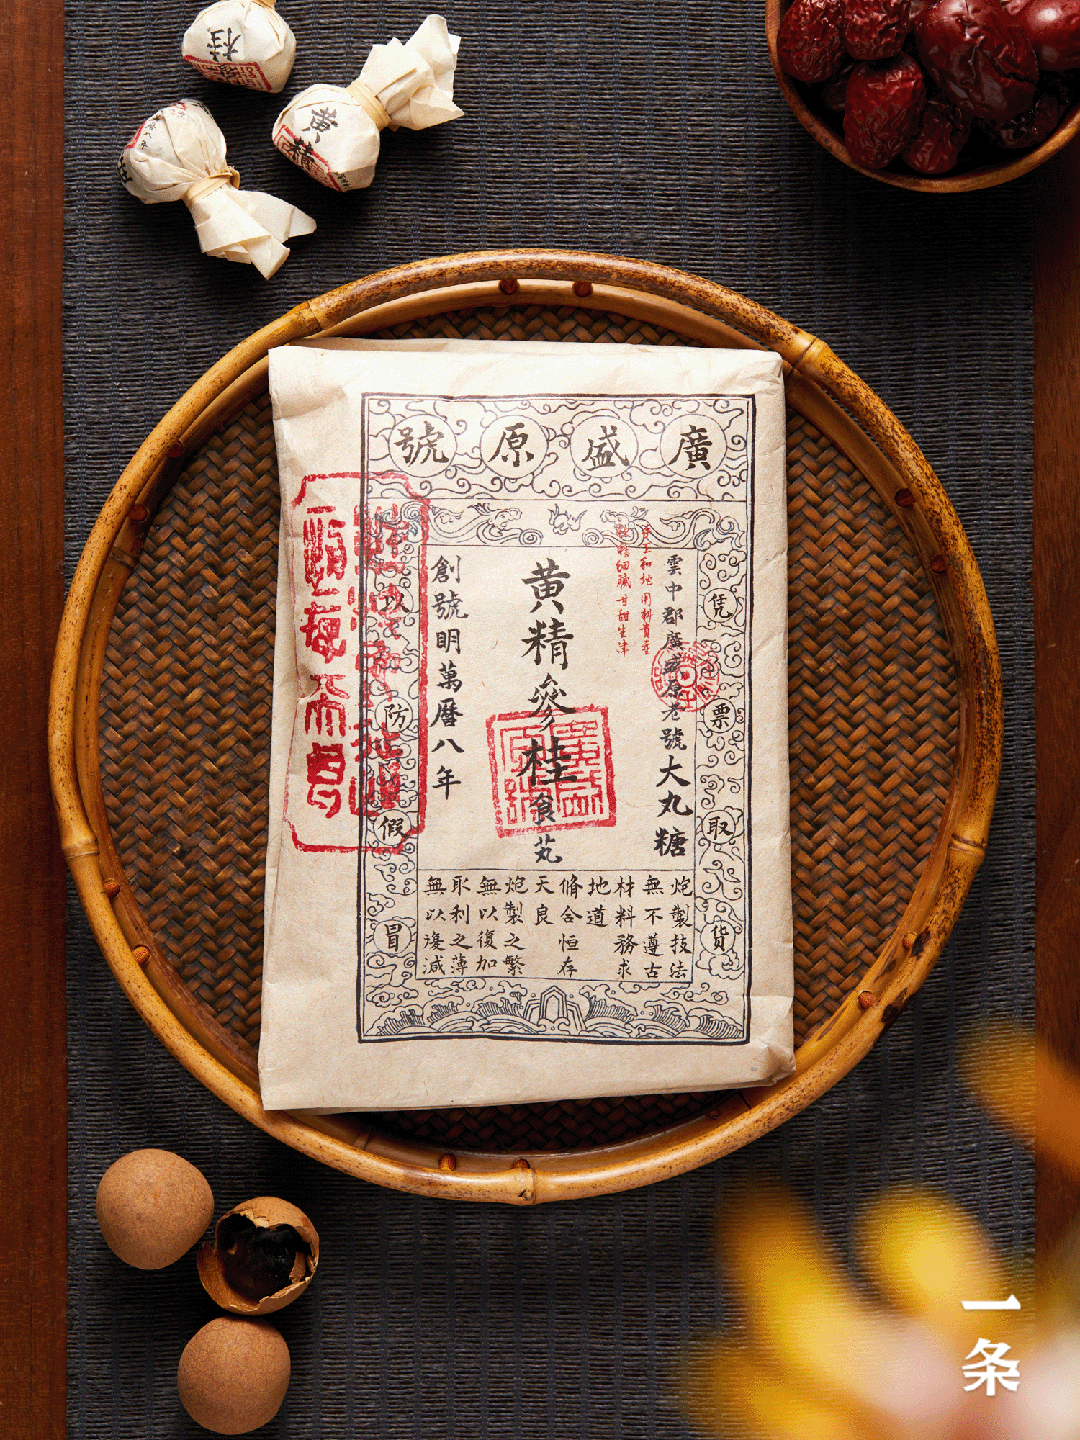 桂
黄精
廣盛原號
凭票取货
雲中郡廣盛原老號大丸糖
黄精參桂食丸
廣盛原號
創號明萬曆八年
以防假冒
炮製技法
無不遵古
材料務求
地道
脩合恒存
天良
炮製之繁
無以復加
取利之薄
無以復減
一条